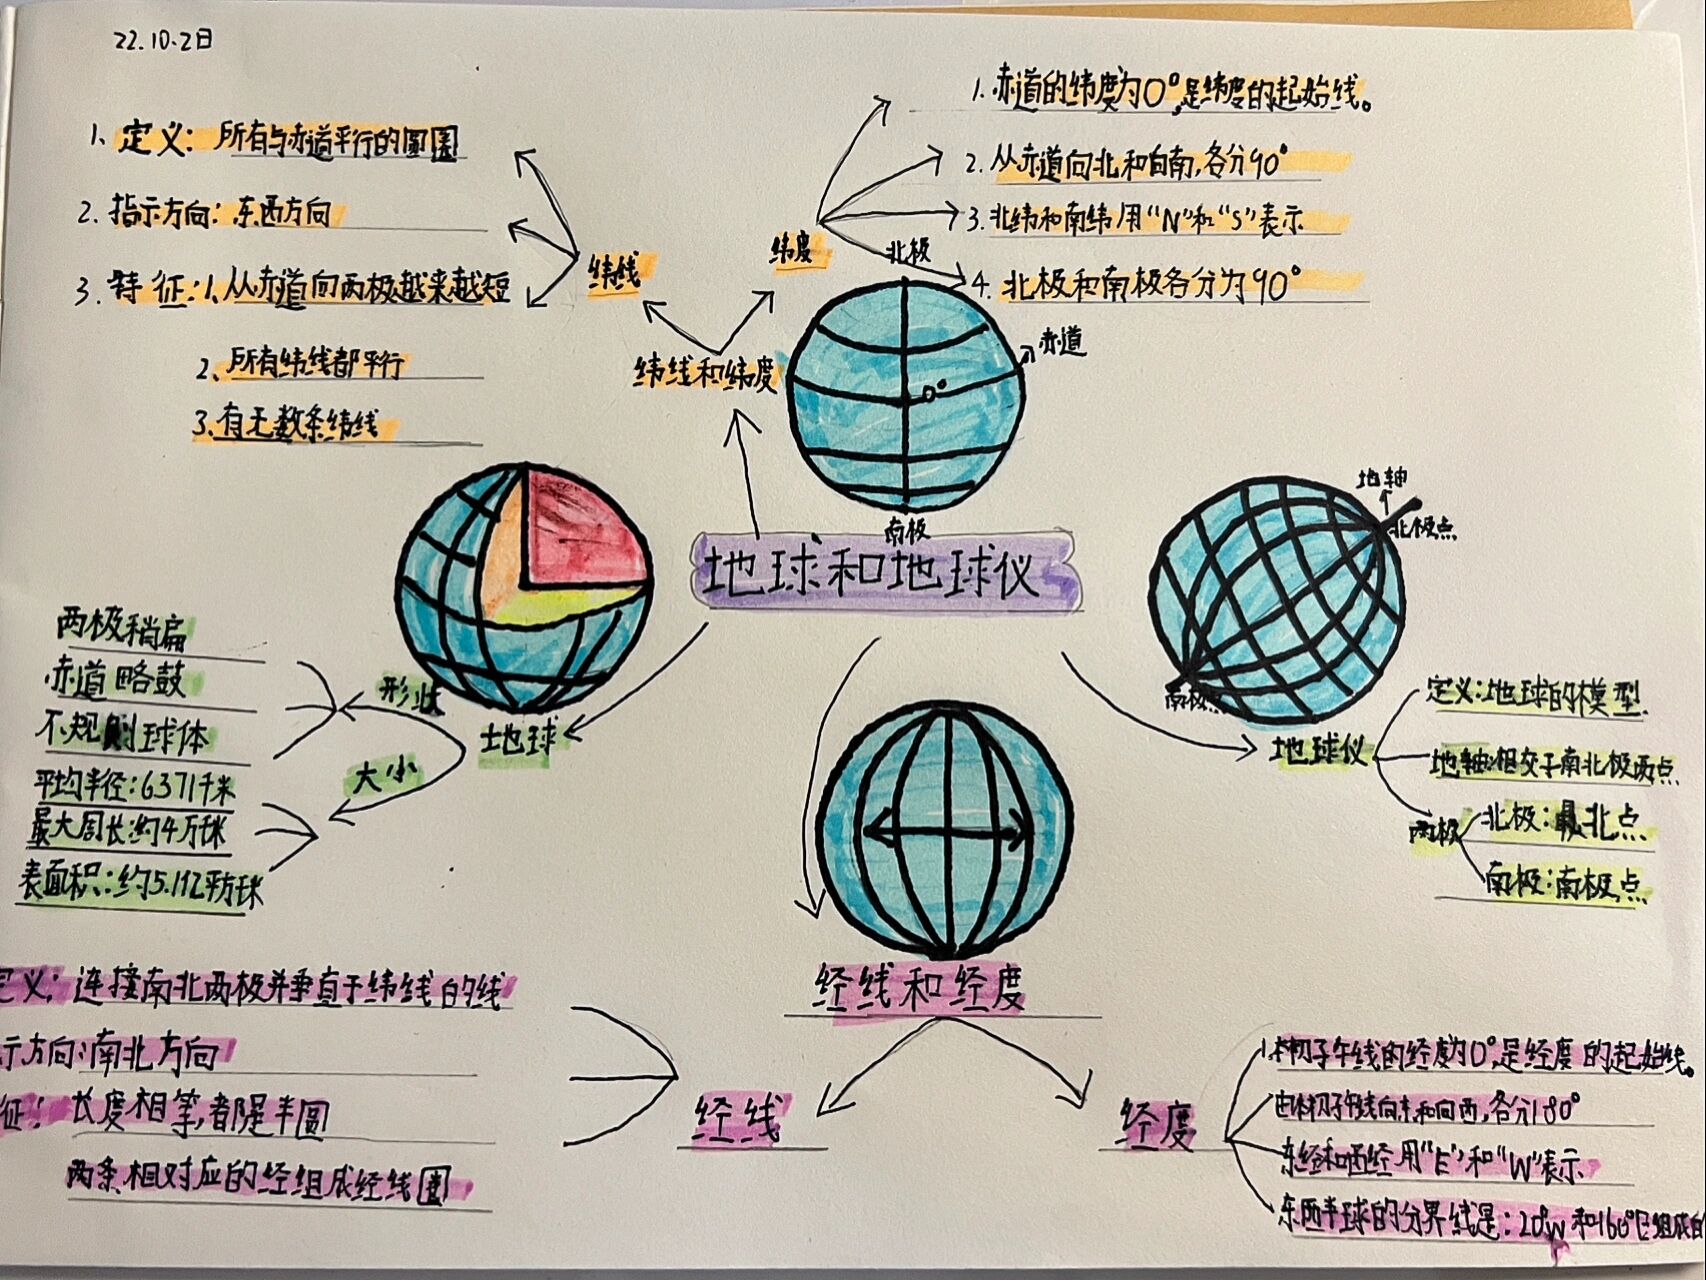 22.10.2日
1、定义：所有与赤道平行的圆圈
2. 指示方向：东西方向
3. 特征：1、从赤道向两极越来越短
2、所有纬线都平行
3、有无数条纬线
纬线
纬度
纬线和纬度
1. 赤道的纬度为0°,是纬度的起始线。
2. 从赤道向北和向南,各分90°
3. 北纬和南纬用“N”和“S”表示
4. 北极和南极各分为90°
北极
赤道
0°
南极
地球和地球仪
地轴
北极点
南极点
地球仪
定义：地球的模型
地轴：相交于南北极两点
两极
北极：最北点
南极：南极点
地球
形状
两极稍扁
赤道略鼓
不规则球体
大小
平均半径：6371千米
最大周长：约4万米
表面积：约5.1亿平方米
经线和经度
经线
定义：连接南北两极并垂直于纬线的线
示方向：南北方向
征：长度相等，都是半圆
两条相对应的经组成经线圈
经度
1.本初子午线的经度为0°,是经度的起始线。
由本初子午线向东和向西,各分180°
东经和西经用“E”和“W”表示
东西半球的分界线是：20°W和160°E组成的